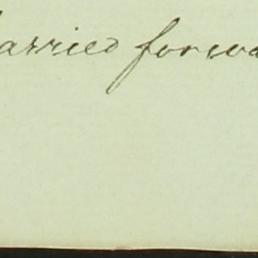 arried forwa